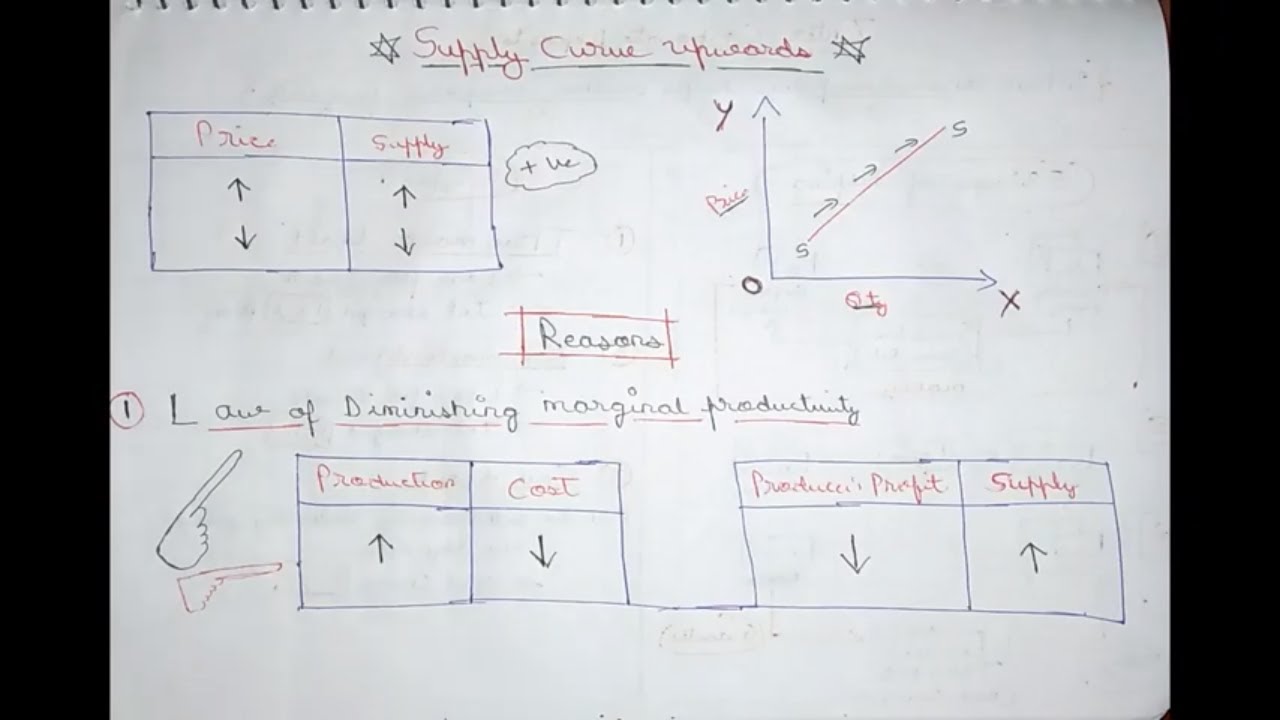 ☆ Supply Curve upwards ☆
Price Supply
↑ ↑
↓ ↓
+ve
Y
Price
S
S
O
Qty
X
Reasons
① Law of Diminishing marginal productivity
Production Cost
↑ ↓
Producer's Profit Supply
↓ ↑